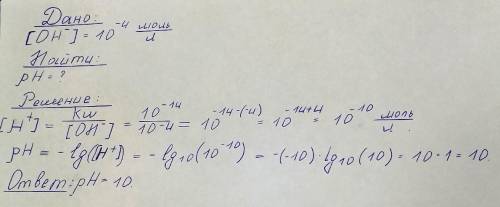 Дано:
[OH⁻] = 10⁻⁴ моль/л
Найти:
pH = ?
Решение:
[H⁺] = Kw/[OH⁻] = 10⁻¹⁴/10⁻⁴ = 10⁻¹⁴⁻⁽⁻⁴⁾ = 10⁻¹⁴⁺⁴ = 10⁻¹⁰ моль/л.
pH = -lg([H⁺]) = -lg₁₀(10⁻¹⁰) = -(-10)·lg₁₀(10) = 10·1 = 10.
Ответ: pH = 10.